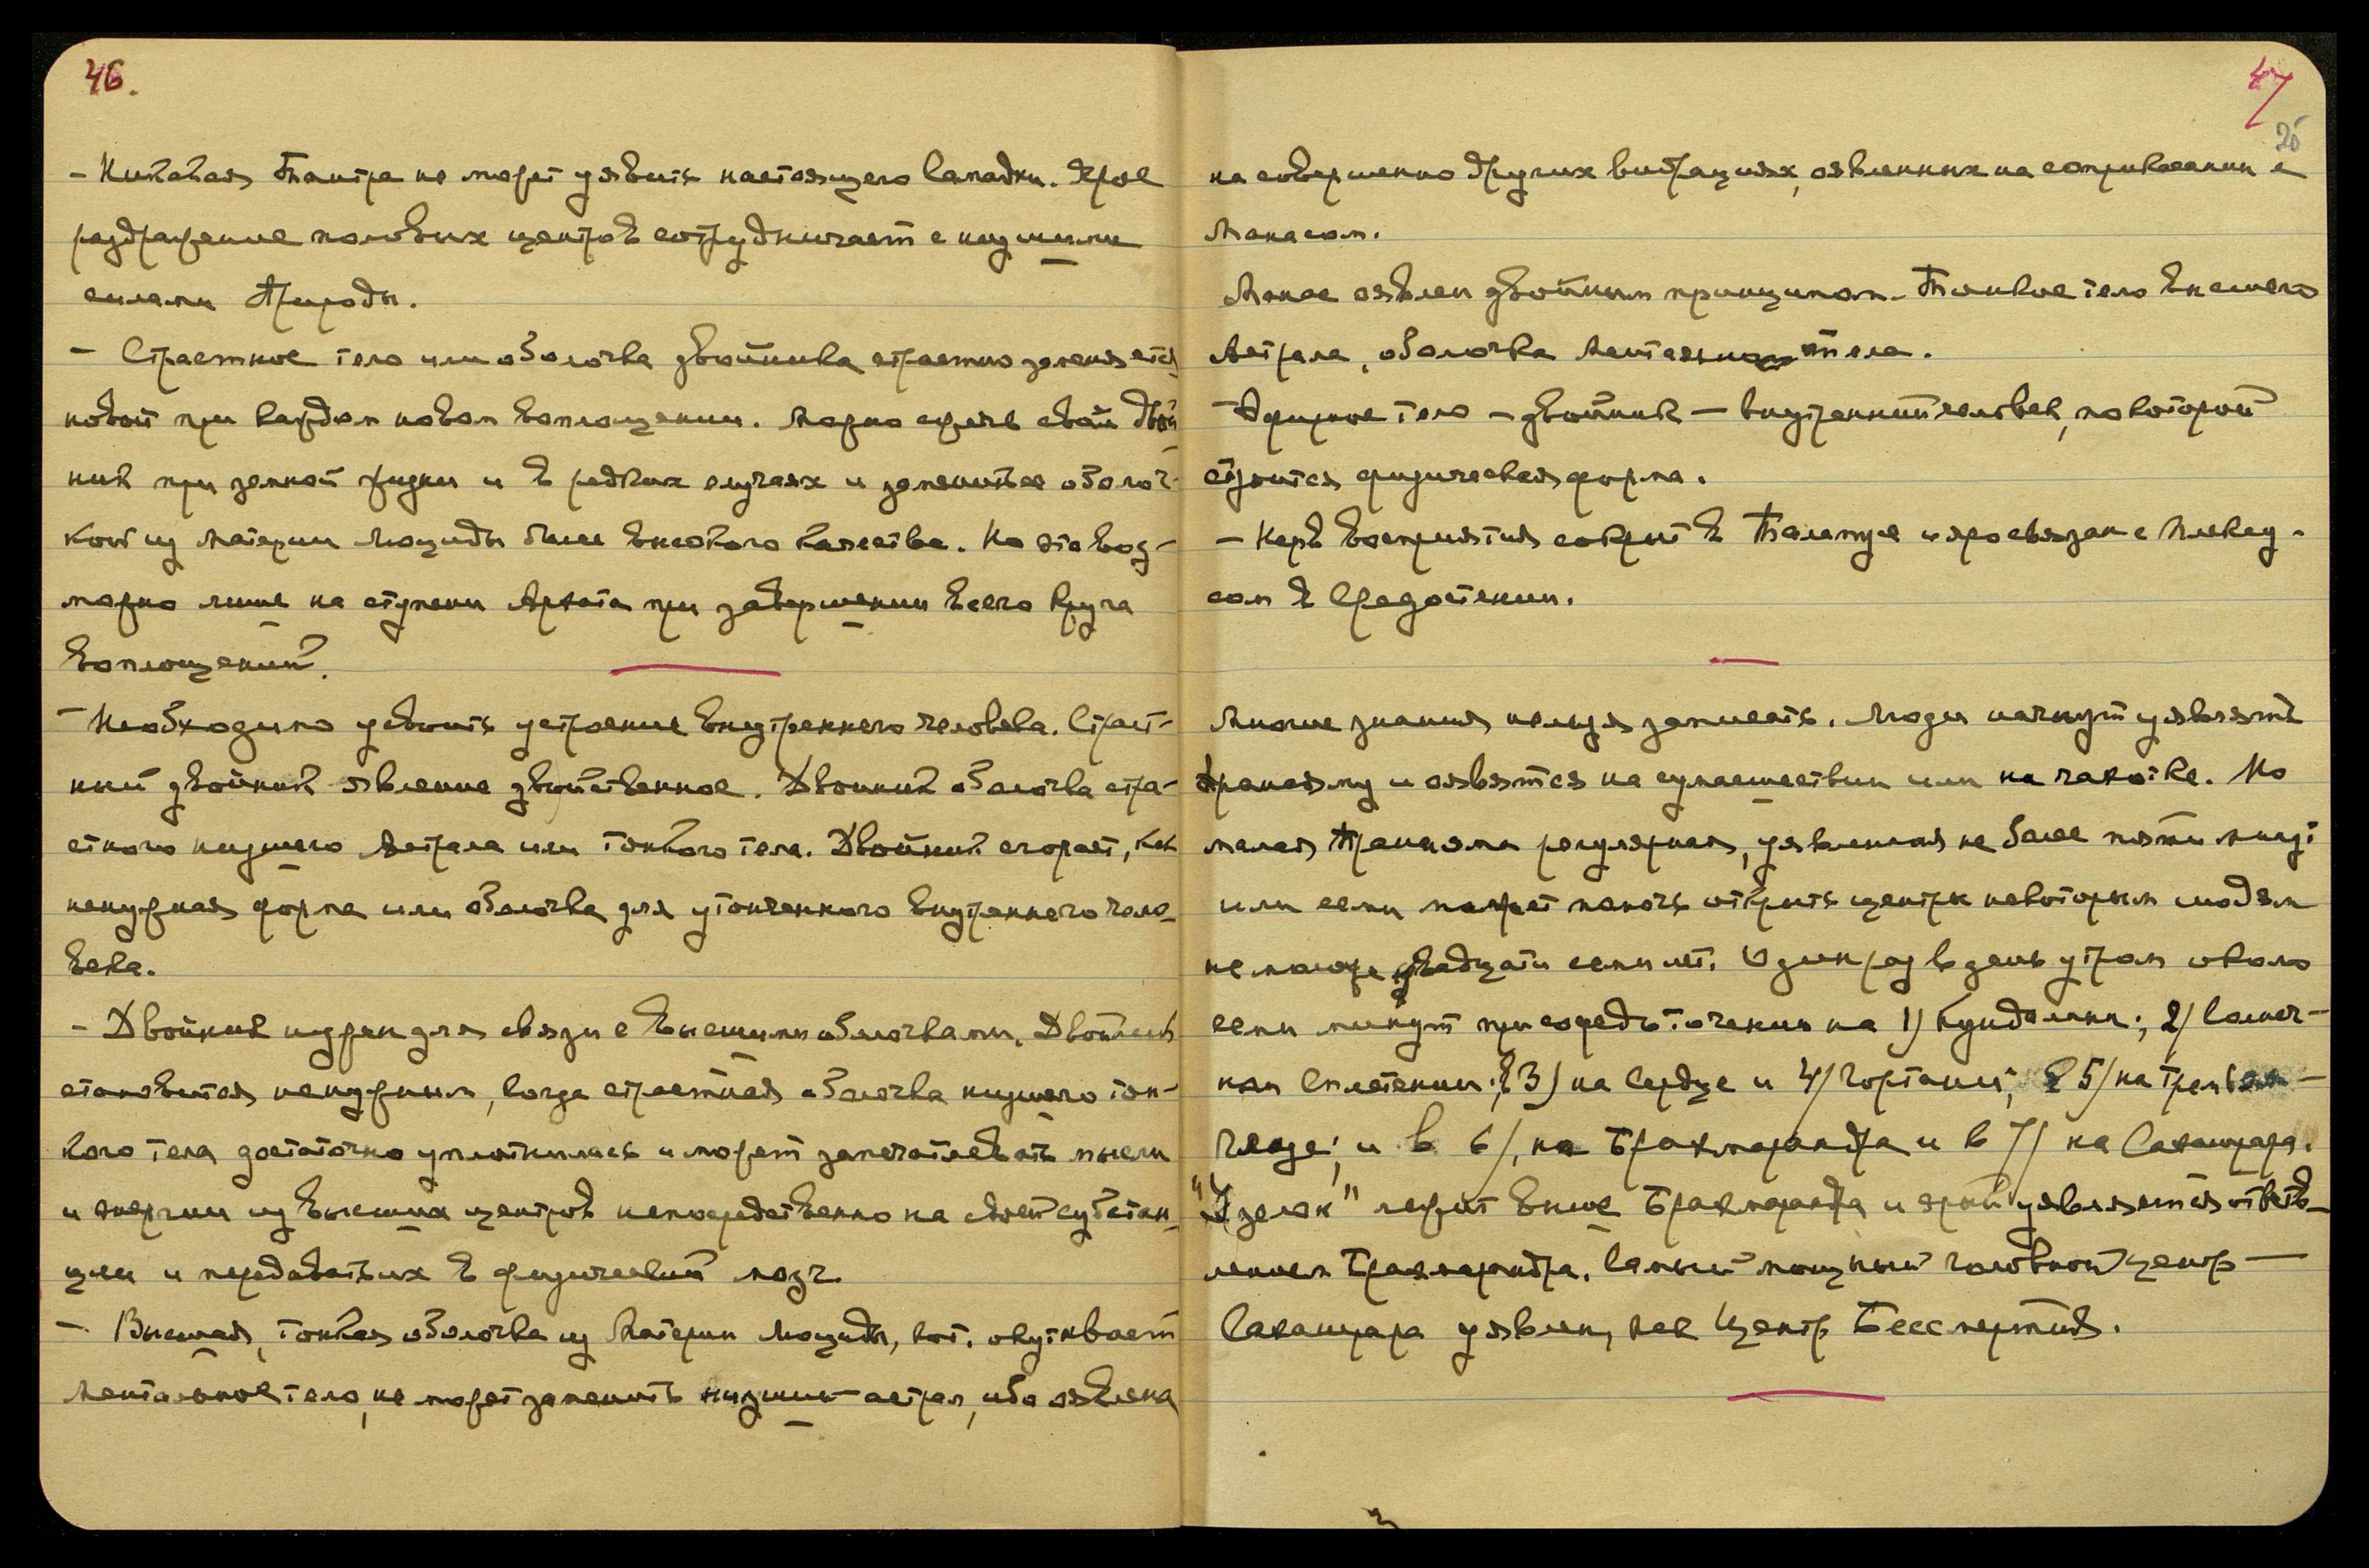 46.
– Никакая Тантра не может уявить настоящего Самадхи. Ярое
раздражение половых центров сотрудничает с низшими
силами Природы.
– Страстное тело или оболочка двойника страстно заменяется
новой при каждом новом воплощении. Можно сжечь свой двой-
ник при земной жизни и в редких случаях и заменить ее оболоч-
кой из Материи Люциды более высокого качества. Но это воз-
можно лишь на ступени Архата при завершении всего Круга
воплощений.
– Необходимо усвоить устроение внутреннего человека. Страст-
ный двойник явление двойственное. Двойник оболочка стра-
стного низшего Астрала или тонкого тела. Двойник сгорает, как
ненужная форма или оболочка для утонченного внутреннего чело-
века.
– Двойник нужен для связи с высшими оболочками. Двойник
становится ненужным, когда страстная оболочка низшего тон-
кого тела достаточно уплотнилась и может запечатлевать мысли
и энергии из высших центров непосредственно на своей субстан-
ции и передавать их в физический мозг.
– Высшая, тонкая оболочка из Материи Люциды, кот. окутывает
Ментальное тело, не может заменить низший астрал, ибо оявлена
47
26
на совершенно других вибрациях, оявленных на соприкасании с
Манасом.
Манас оявлен двойным принципом. – Тонкое тело высшего
Астрала, оболочка Ментального тела.
– Эфирное тело – двойник – внутренний человек, по которой
строится физическая форма.
– Нерв восприятия сокрыт в Таламусе и яро связан с Плексу-
сом в Средостении.
Многие знания нельзя записать. Люди начнут уявлять
Пранаяму и оявятся на сумасшествии или на чахотке. Но
малая Пранаяма регулярная, уявленная не более пяти минут
или семи может помочь открыть центры некоторым людям
не моложе двадцати семи лет. Один раз в день утром около
семи минут при сосредоточении на 1) Кундалини; 2) Солнеч-
ном Сплетении; 3) на Сердце и 4) Гортани; 5) на Третьем
Глазе; и в 6), на Брахмарандра и в 7) на Сахашрара.
лежит выше Брахмарандра и ярый уявляется ответв-
лением Брахмарандра. Самый мощный головной центр –
Сахашрара уявлен, как Центр Бессмертия.